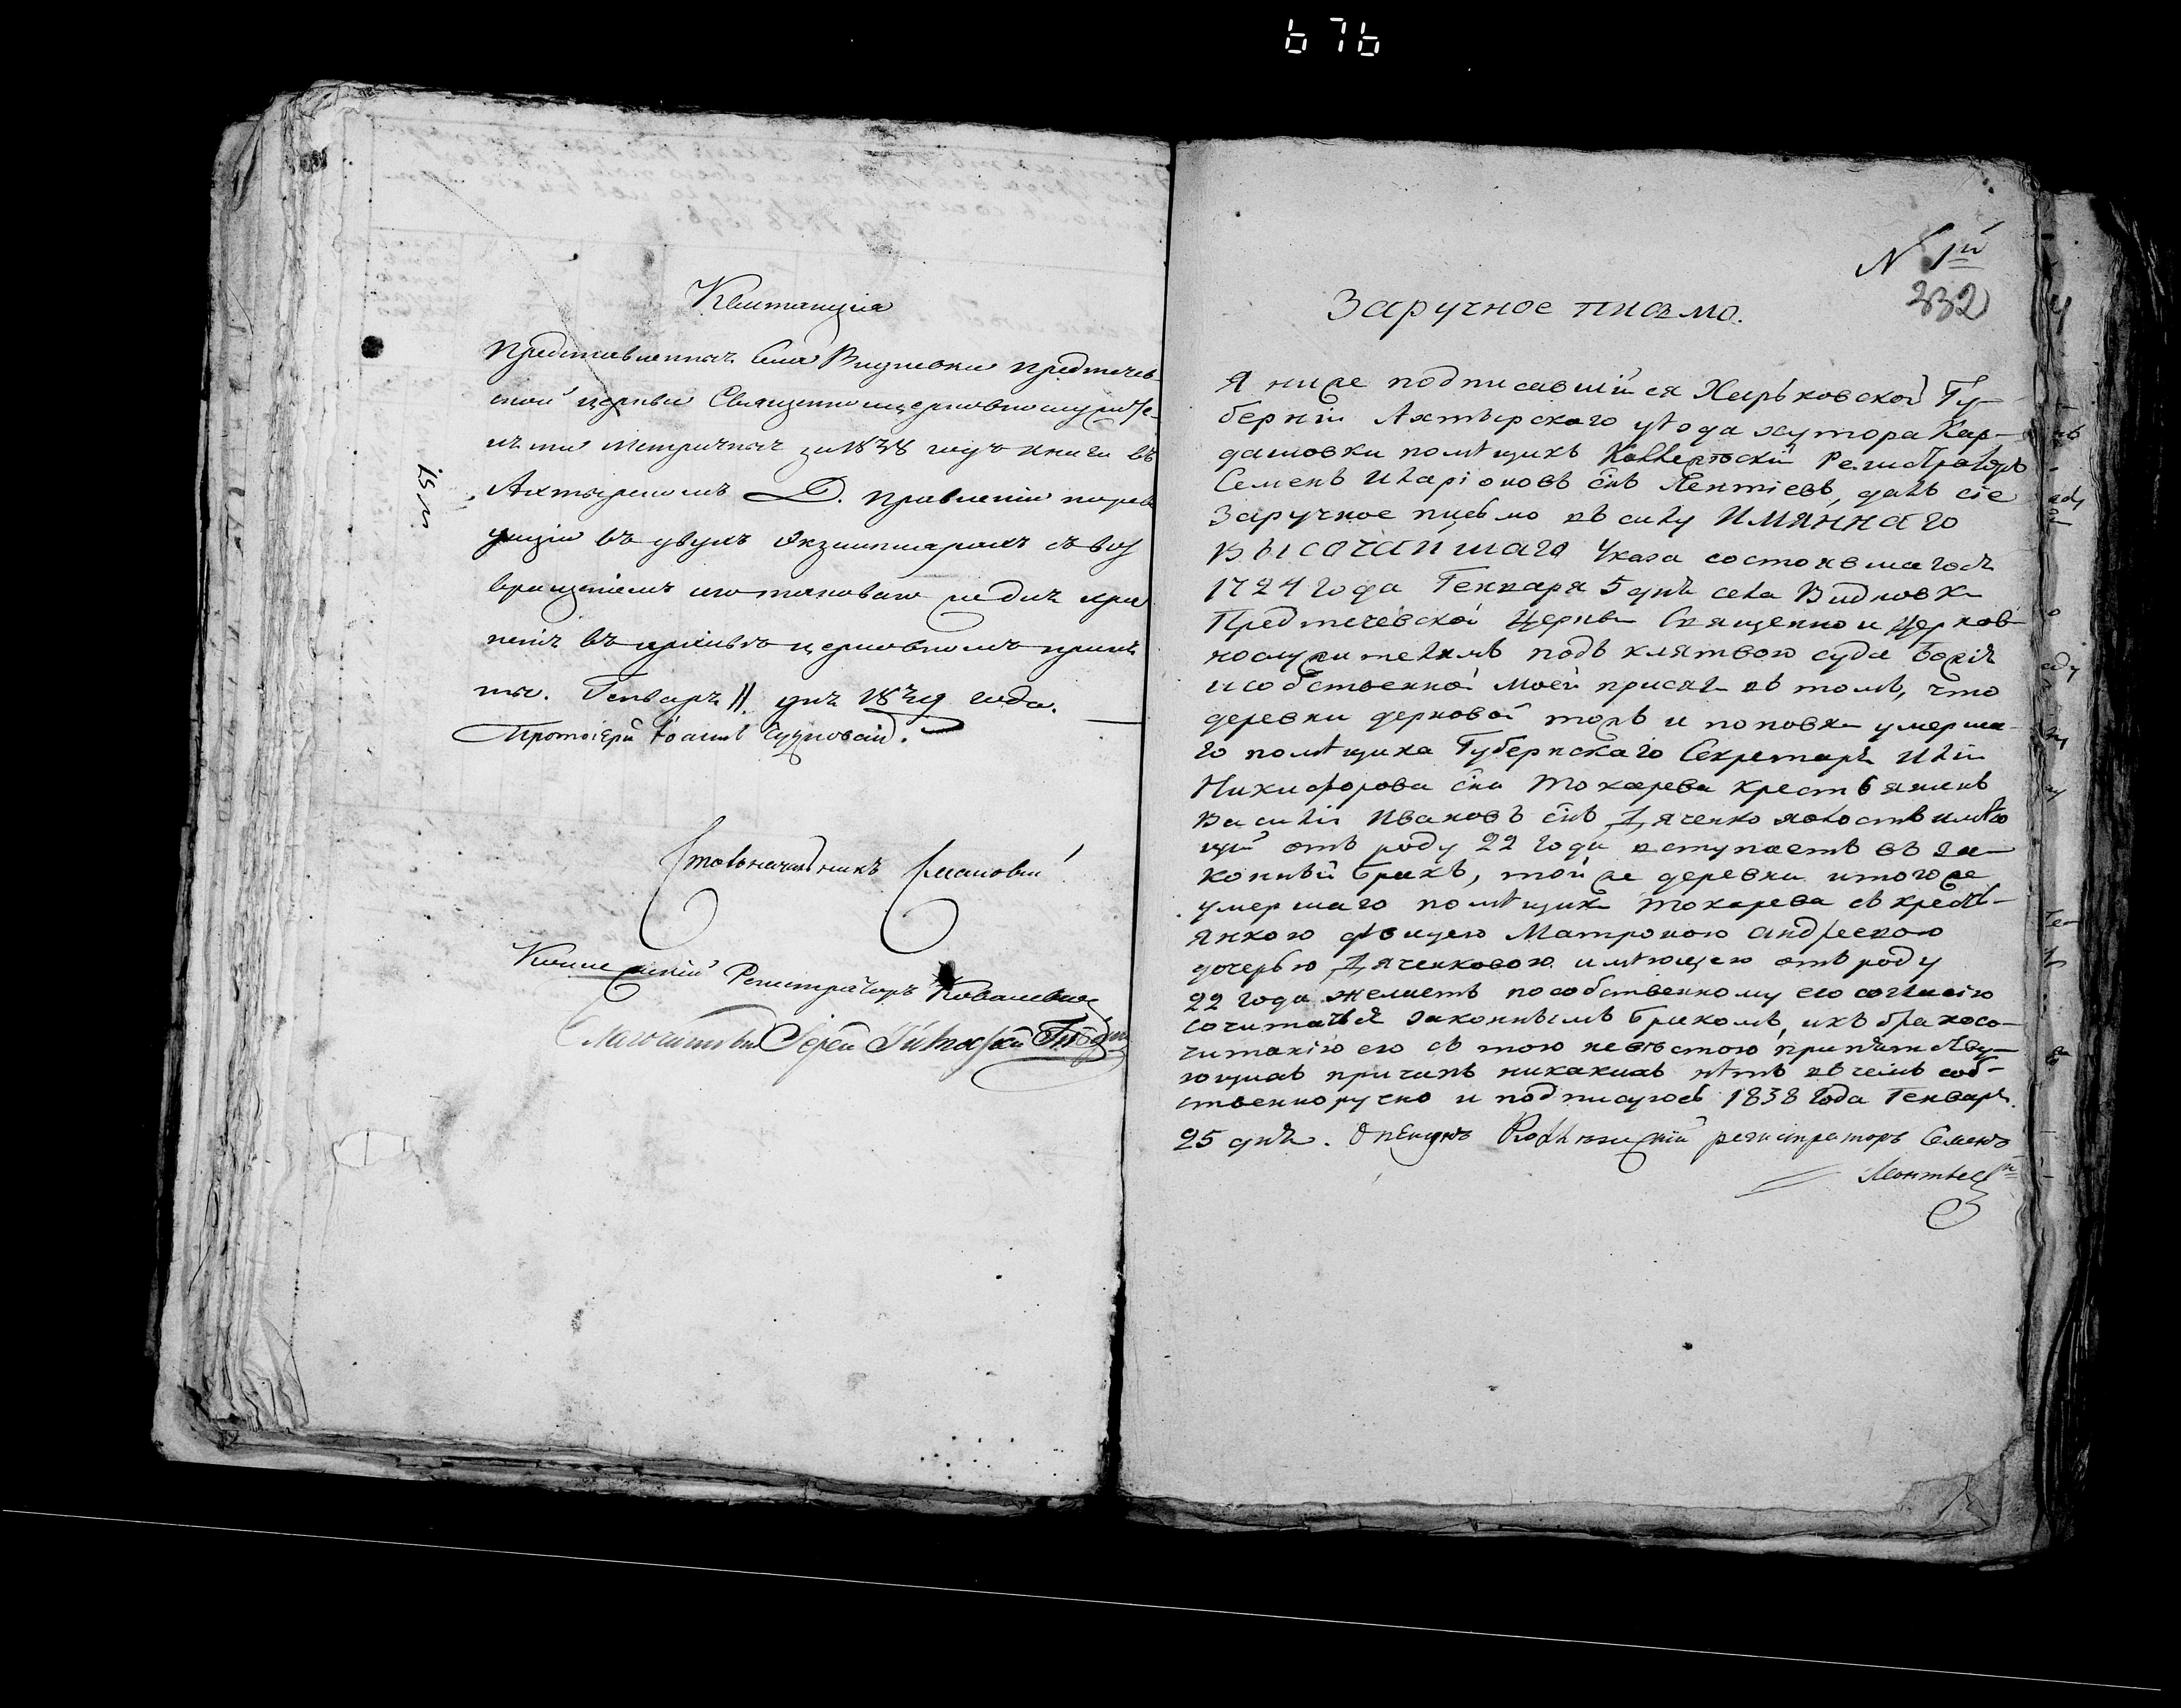 676
Квитанция
Представленныя села Видновки Предтечев-
ской церкви Священноицерковнослужите-
лями метричныя за 1838 годъ книги въ
Ахтырскомъ Д. Правленіи
въ двухъ экземплярахъ съ воз
вращеніемъ для хра
ненія въ архивѣ церковномъ приня
ты. Генваря 11 дня 1839 года.
Протоіерей Іоаннъ
Столоначальникъ
Коллежскій Регистраторъ Ковалевскій
Іерей
N 1й
332
Заручное письмо.
Я ниже подписавшийся Харьковской Гу-
берніи Ахтырского уѣзда хутора Кар-
дашовки помѣщикъ Коллежскій Регистраторъ
Семенъ Иларіоновъ снъ Леитіевъ, далъ сіе
Заручное письмо въ силу Имяннаго
Высочайшаго Указа состоявшагося
1724 года Генваря 5 дня села Видновки
Предтечевской Церкви Священно и Церков-
нослужителямъ подъ клятвою суда Божія
и собственной моей присяги въ томъ, что
деревни дерновой тожъ и поповки умерша-
го помѣщика Губернскаго Секретаря Иліи
Никифорова сна Токарева крестьянинъ
Василій Ивановъ снъ Дяченко холостъ имѣю
щій отъ роду 22 года вступаетъ въ за-
конный бракъ, той же деревни и того же
умершаго помѣщика Токарева съ кресть-
янкою дѣвицею Матроною Андреевою
дочерью Дяченковою имѣющею отъ роду
22 года желаетъ по собственному его согласію
сочитатся законнымъ бракомъ, ихъ бракосо-
читанію его съ тою невѣстою припятству-
ющихъ причинъ никакихъ нѣтъ въ чемъ соб-
ственноручно и подписуюсь 1838 Года Генваря
25 дня. Опекунъ Коллежскій регистраторъ Семенъ
Леонтьев